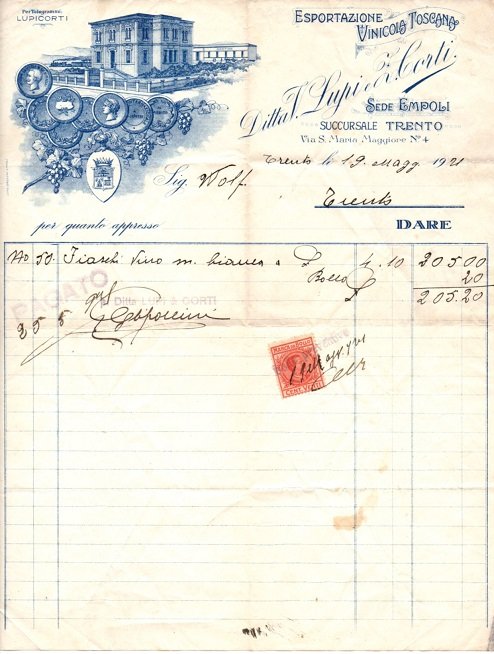 Per Telegrammi:
LUPICORTI
ESPORTAZIONE
VINICOLA TOSCANA
Ditta V. Lupi e Z. Corti.
SEDE EMPOLI
SUCCURSALE TRENTO
Via S. Maria Maggiore N° 4
Trento li 19 Magg 1921
Sig. Wolf.
Trento
per quanto appresso
DARE
No 50. Fiaschi Vino m. bianco a L 4.10 205.00
Bollo 20
L 205.20
PAGATO
p. Ditta LUPI & CORTI
25 5
MARCA DA BOLLO
CENT. VENTI